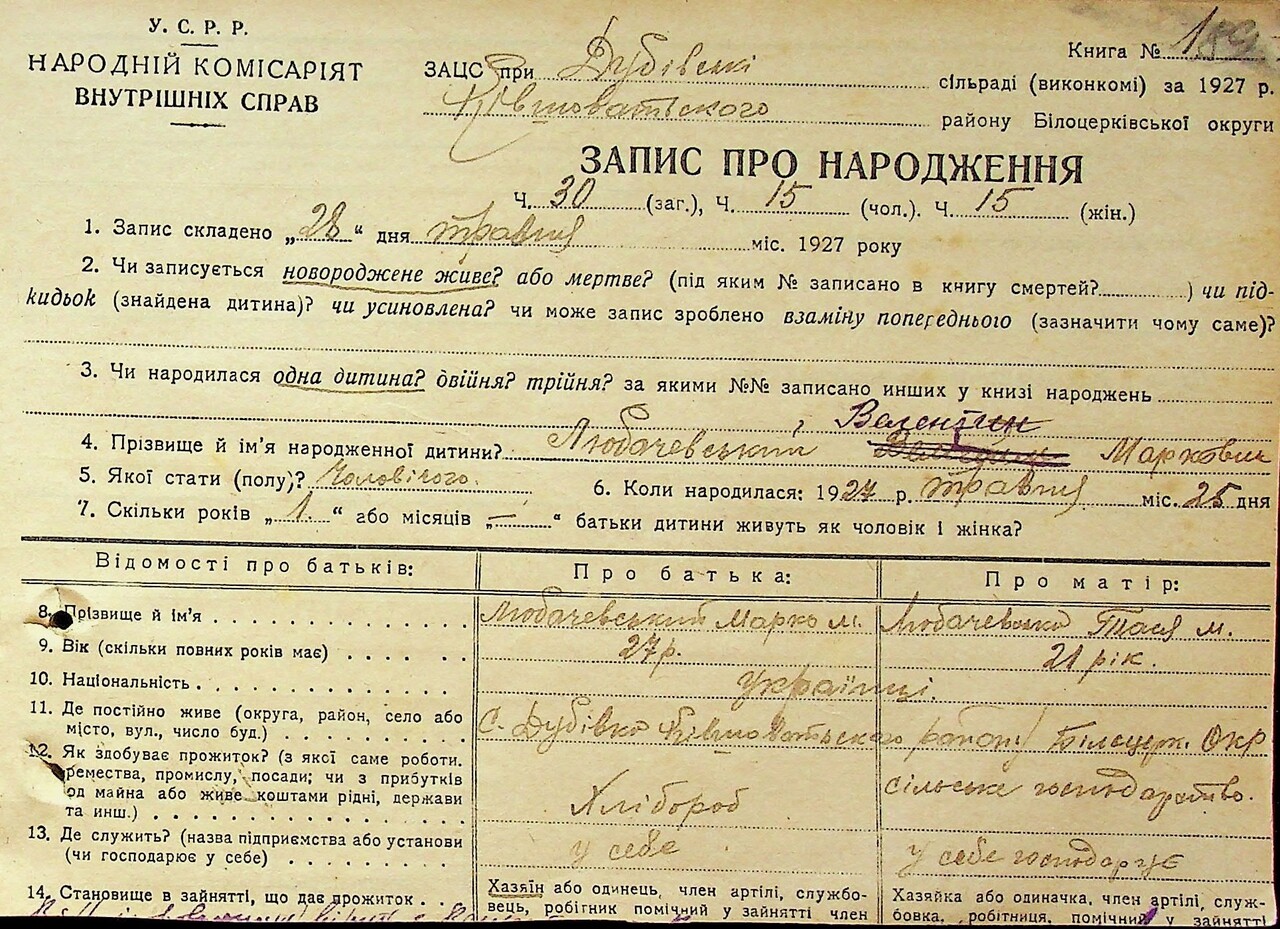 У. С. Р. Р.
НАРОДНІЙ КОМІСАРІЯТ
ВНУТРІШНІХ СПРАВ
Книга № 1
ЗАЦС при Дубівські сільраді (виконкомі) за 1927 р.
Ківшоватьского району Білоцерківської округи
ЗАПИС ПРО НАРОДЖЕННЯ
Ч. 30 (заг.), Ч. 15 (чол.). Ч. 15 (жін.)
1. Запис складено „28“ дня травня міс. 1927 року
2. Чи записується новороджене живе? або мертве? (під яким № записано в книгу смертей?) чи під-
кидьок (знайдена дитина)? чи усиновлена? чи може запис зроблено взаміну попереднього (зазначити чому саме)?
3. Чи народилася одна дитина? двійня? трійня? за якими №№ записано инших у книзі народжень
Валентин
4. Прізвище й ім’я народженної дитини? Любачевський Маркович
5. Якої стати (полу)? Чоловічого. 6. Коли народилася: 1927 р. травня міс. 25 дня
7. Скільки років „1.“ або місяців „—“ батьки дитини живуть як чоловік і жінка?
Відомості про батьків: Про батька: Про матір:
8. Прізвище й ім’я Любачевський Марко М. Любачевська Тася М.
9. Вік (скільки повних років має) 27 р. 21 рік.
10. Національність Українці.
11. Де постійно живе (округа, район, село або
місто, вул., число буд.) С. Дубівка Ківшоватьского району Білоцерк. Окр
12. Як здобуває прожиток? (з якої саме роботи.
ремества, промислу, посади; чи з прибутків
од майна або живе коштами рідні, держави
та инш.) Хлібороб сільське господарство.
13. Де служить? (назва підприємства або установи
(чи господарює у себе) у себе у себе господарує
14. Становище в зайнятті, що дає прожиток
Хазяїн або одинець, член артілі, службо-
вець, робітник помічний у зайнятті член
Хазяйка або одиначка, член артілі, служ-
бовка, робітниця, помічний у зайнятті